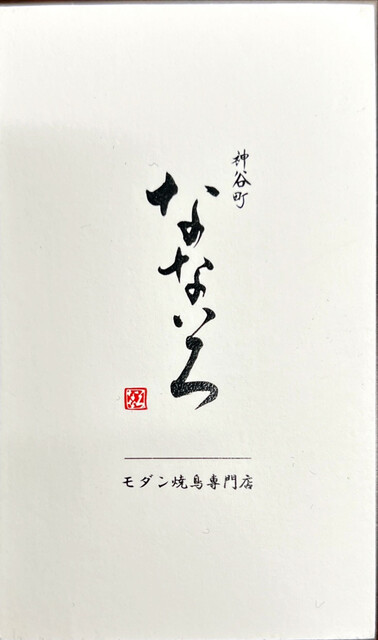 神谷町
なないろ
モダン焼鳥専門店